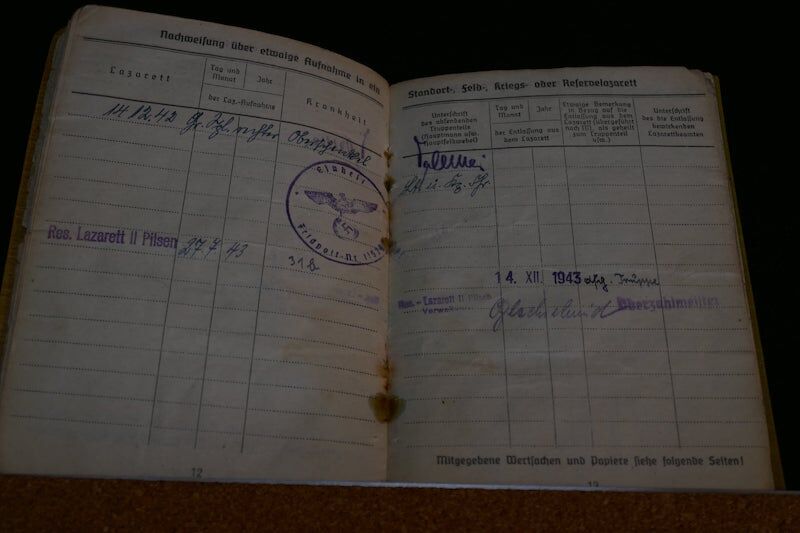 Nachweisung über etwaige Aufnahme in ein
Lazarett
Tag und
Monat
Jahr
der Laz.-Aufnahme
Krankheit
14.12.42 Gr. Spl. rechter Oberschenkel
Einheit
Feldpost-Nr.
Res. Lazarett II Pilsen 27 7 43
31b
12
Standort-, Feld-, Kriegs- oder Reservelazarett
Unterschrift
des absendenden
Truppenteils
(Hauptmann usw.
Hauptfeldwebel)
Tag und
Monat
Jahr
der Entlassung aus
dem Lazarett
Etwaige Bemerkung
in Bezug auf die
Entlassung aus dem
Lazarett (übergeführt
nach III), als geheilt
zum Truppenteil
usw.)
Unterschrift
des die Entlassung
bewirkenden
Lazarettbeamten
Lt. u.
14. XII. 1943 Truppe
Res.-Lazarett II Pilsen
Oberzahlmeister
Mitgegebene Wertsachen und Papiere siehe folgende Seiten!
13